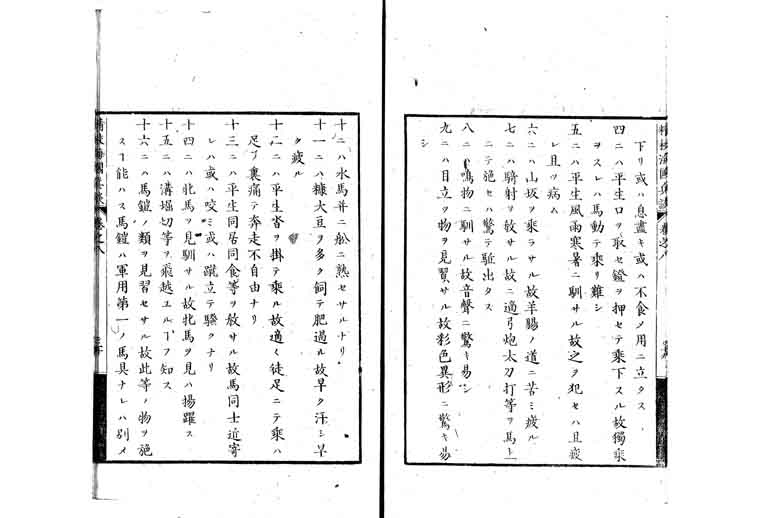 下リ或ハ息盡キ或ハ不食メ用ニ立タス
四ニハ平生口ヲ取セ鐙ヲ押セテ乘下スル故獨乘
ヲスレハ馬動テ乘リ難シ
五ニハ平生風雨寒暑ニ馴サル故之ヲ犯セハ且疲
レ且ツ病ム
六ニハ山坂ヲ乘ラサル故羊腸ノ道ニ苦ミ疲ル
七ニハ騎射ヲ教サル故ニ適弓炮太刀打等ヲ馬上
ニテ爲セハ驚テ駈出タス
八ニハ鳴物ニ馴サル故音聲ニ驚キ易シ
九ニハ目立ツ物ヲ見習サル故彩色異形ニ驚キ易
シ
十ニハ水馬并ニ舩ニ熟セサルナリ
十一ニハ糠大豆ヲ多ク飼テ肥過ル故早ク汗シ早
ク疲ル
十二ニハ平生沓ヲ掛テ乘ル故適々徒足ニテ乘ハ
足ノ裏痛テ奔走不自由ナリ
十三ニハ平生同居同食等ヲ教サル故馬同士近寄
レハ或ハ咬ミ或ハ蹴立テ騷クナリ
十四ニハ北馬ヲ見馴サル故牝馬ヲ見ハ揚躍ス
十五ニハ溝堀切等ヲ飛越エルヿヲ知ス
十六ニハ馬鎧ノ類ヲ見習セサル故此等ノ物ヲ施
スヿ能ハス馬鎧ハ軍用第一ノ馬具ナレハ別メ
精校海國兵談 卷之八